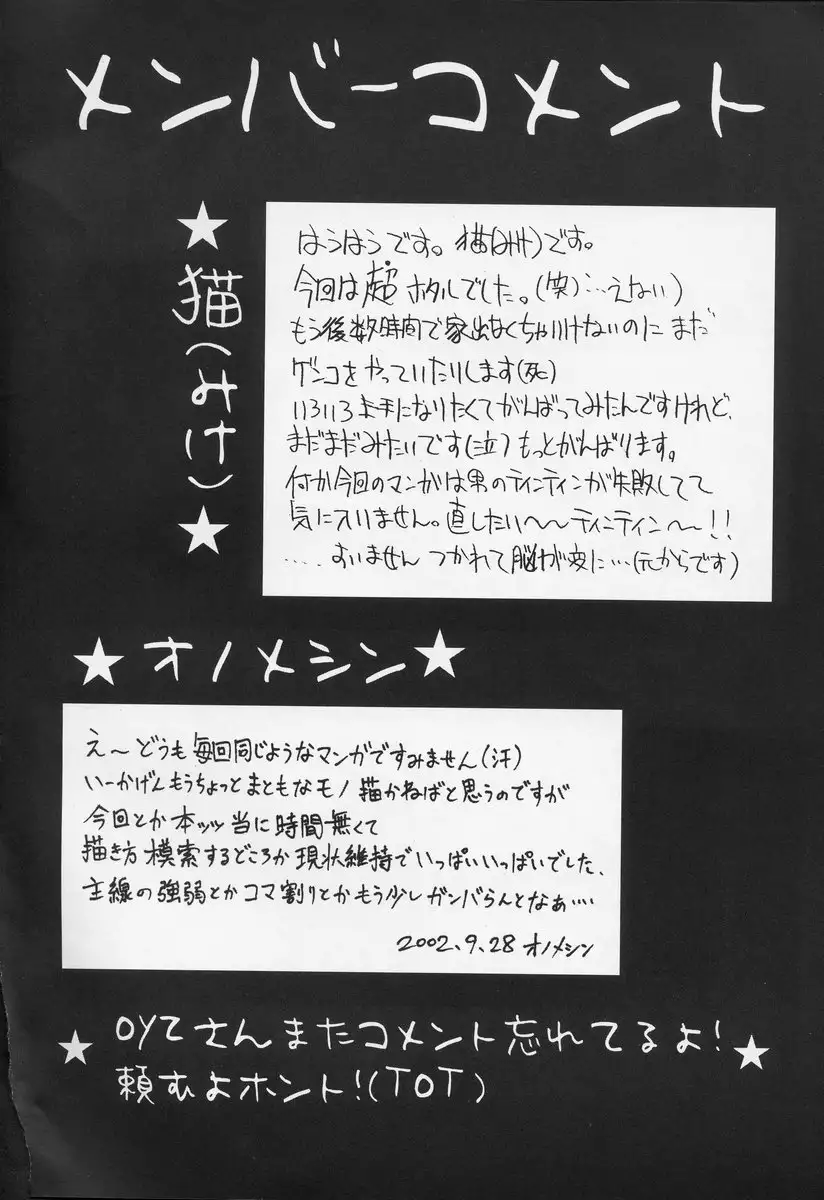 メンバーコメント
★猫(みけ)★
はうはうです。猫(みけ)です。
今回は超ホタルでした。(笑)…えない)
もう後数時間で家出なくちゃいけないのに まだ
ゲンコをやっていたりします(死)
いろいろ上手になりたくてがんばってみたんですけれど、
まだまだみたいです(泣) もっとがんばります。
何か今回のマンガは男のティンティンが失敗してて
気に入いません。直したい〜〜ティンティン〜〜!!
.....すいません つかれて脳が変に…(元からです)
★オノメシン★
え〜どうも毎回同じようなマンガですみません(汗)
いーかげんもうちょっとまともなモノ描かねばと思うのですが
今回とか本ッッ当に時間無くて
描き方模索するどころか現状維持でいっぱいいっぱいでした、
主線の強弱とかコマ割りとかもう少しガンバらんとなぁ……
2002.9.28 オノメシン
★OYZさんまたコメント忘れてるよ!★
頼むよホント!(TOT)